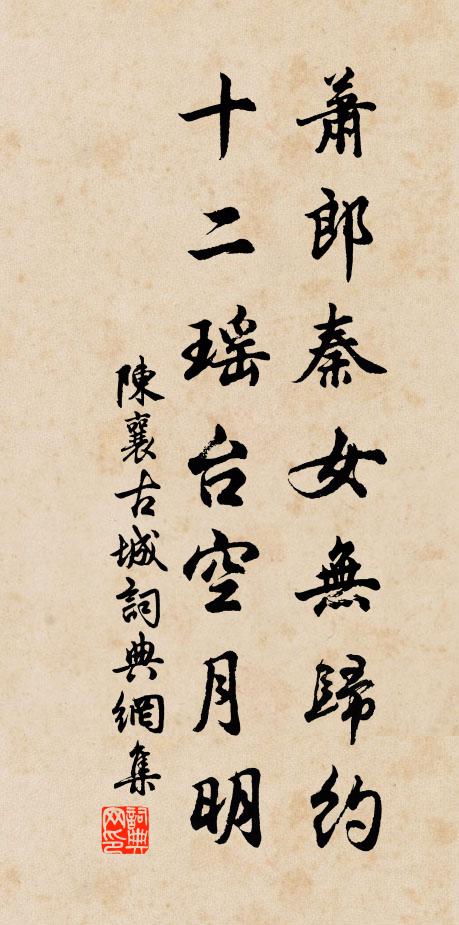 蕭郎秦女無歸約
十二瑶台空月明
陳襄古城詞典網集
詞典网印